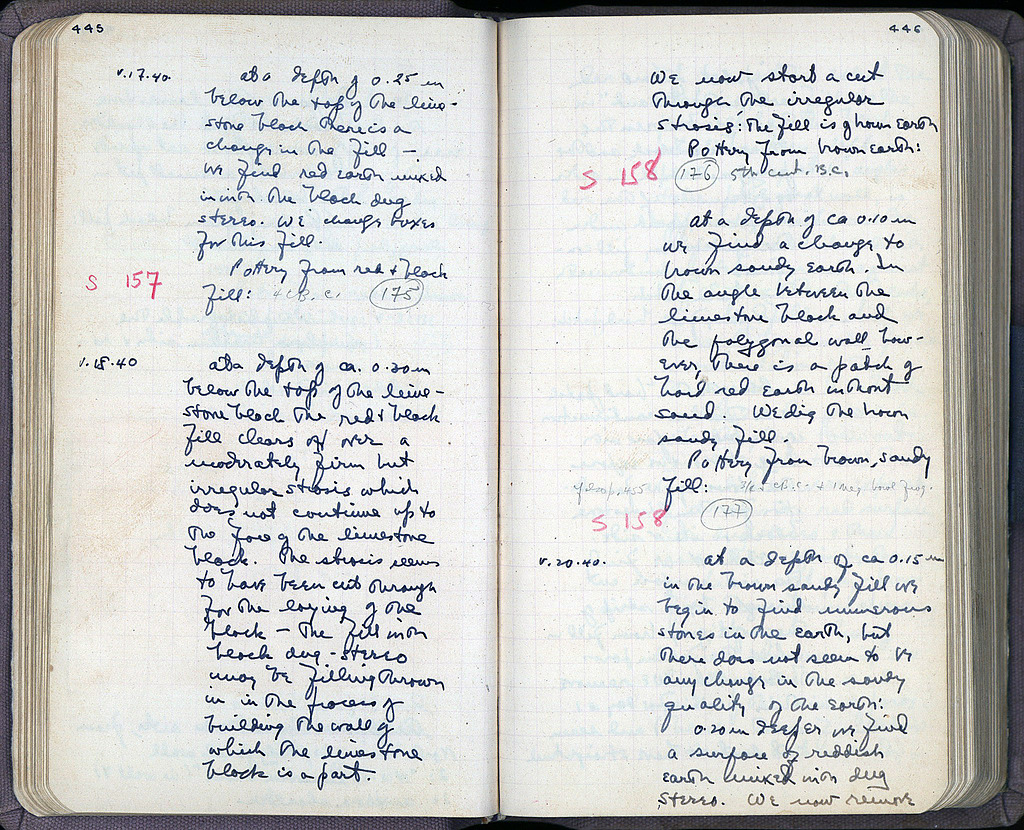 445
v.17.40 at a depth of 0.25 m
below the top of the lime-
stone block there is a
change in the fill —
we find red earth mixed
in with the black dug
stereo. We change boxes
for this fill.
Pottery from red + black
S 157
fill: 4 c B.C. (175)
v.18.40 at a depth of ca. 0.30 m
below the top of the lime-
stone block the red + black
fill clears off over a
moderately firm but
irregular strosis which
does not continue up to
the face of the limestone
block. The strosis seems
to have been cut through
for the laying of the
block — the fill with
black dug-stereo
may be filling thrown
in in the process of
building the wall of
which the limestone
block is a part.
446
We now start a cut
through the irregular
strosis: the fill is of brown earth
Pottery from brown earth:
S 158 (176) 5th cent. B.C.
at a depth of ca 0.10 m
we find a change to
brown sandy earth. In
the angle between the
limestone block and
the polygonal wall how-
ever, there is a patch of
hard red earth without
sand. We dig the brown
sandy fill.
Pottery from brown, sandy
fill: c B.C. + 1 Meg. bowl frag.
S 158 (177)
v.20.40. at a depth of ca 0.15 m
in the brown sandy fill we
begin to find numerous
stones in the earth, but
there does not seem to be
any change in the sandy
quality of the earth:
0.20 m deeper we find
a surface of reddish
earth mixed with dug
stereo. We now remove